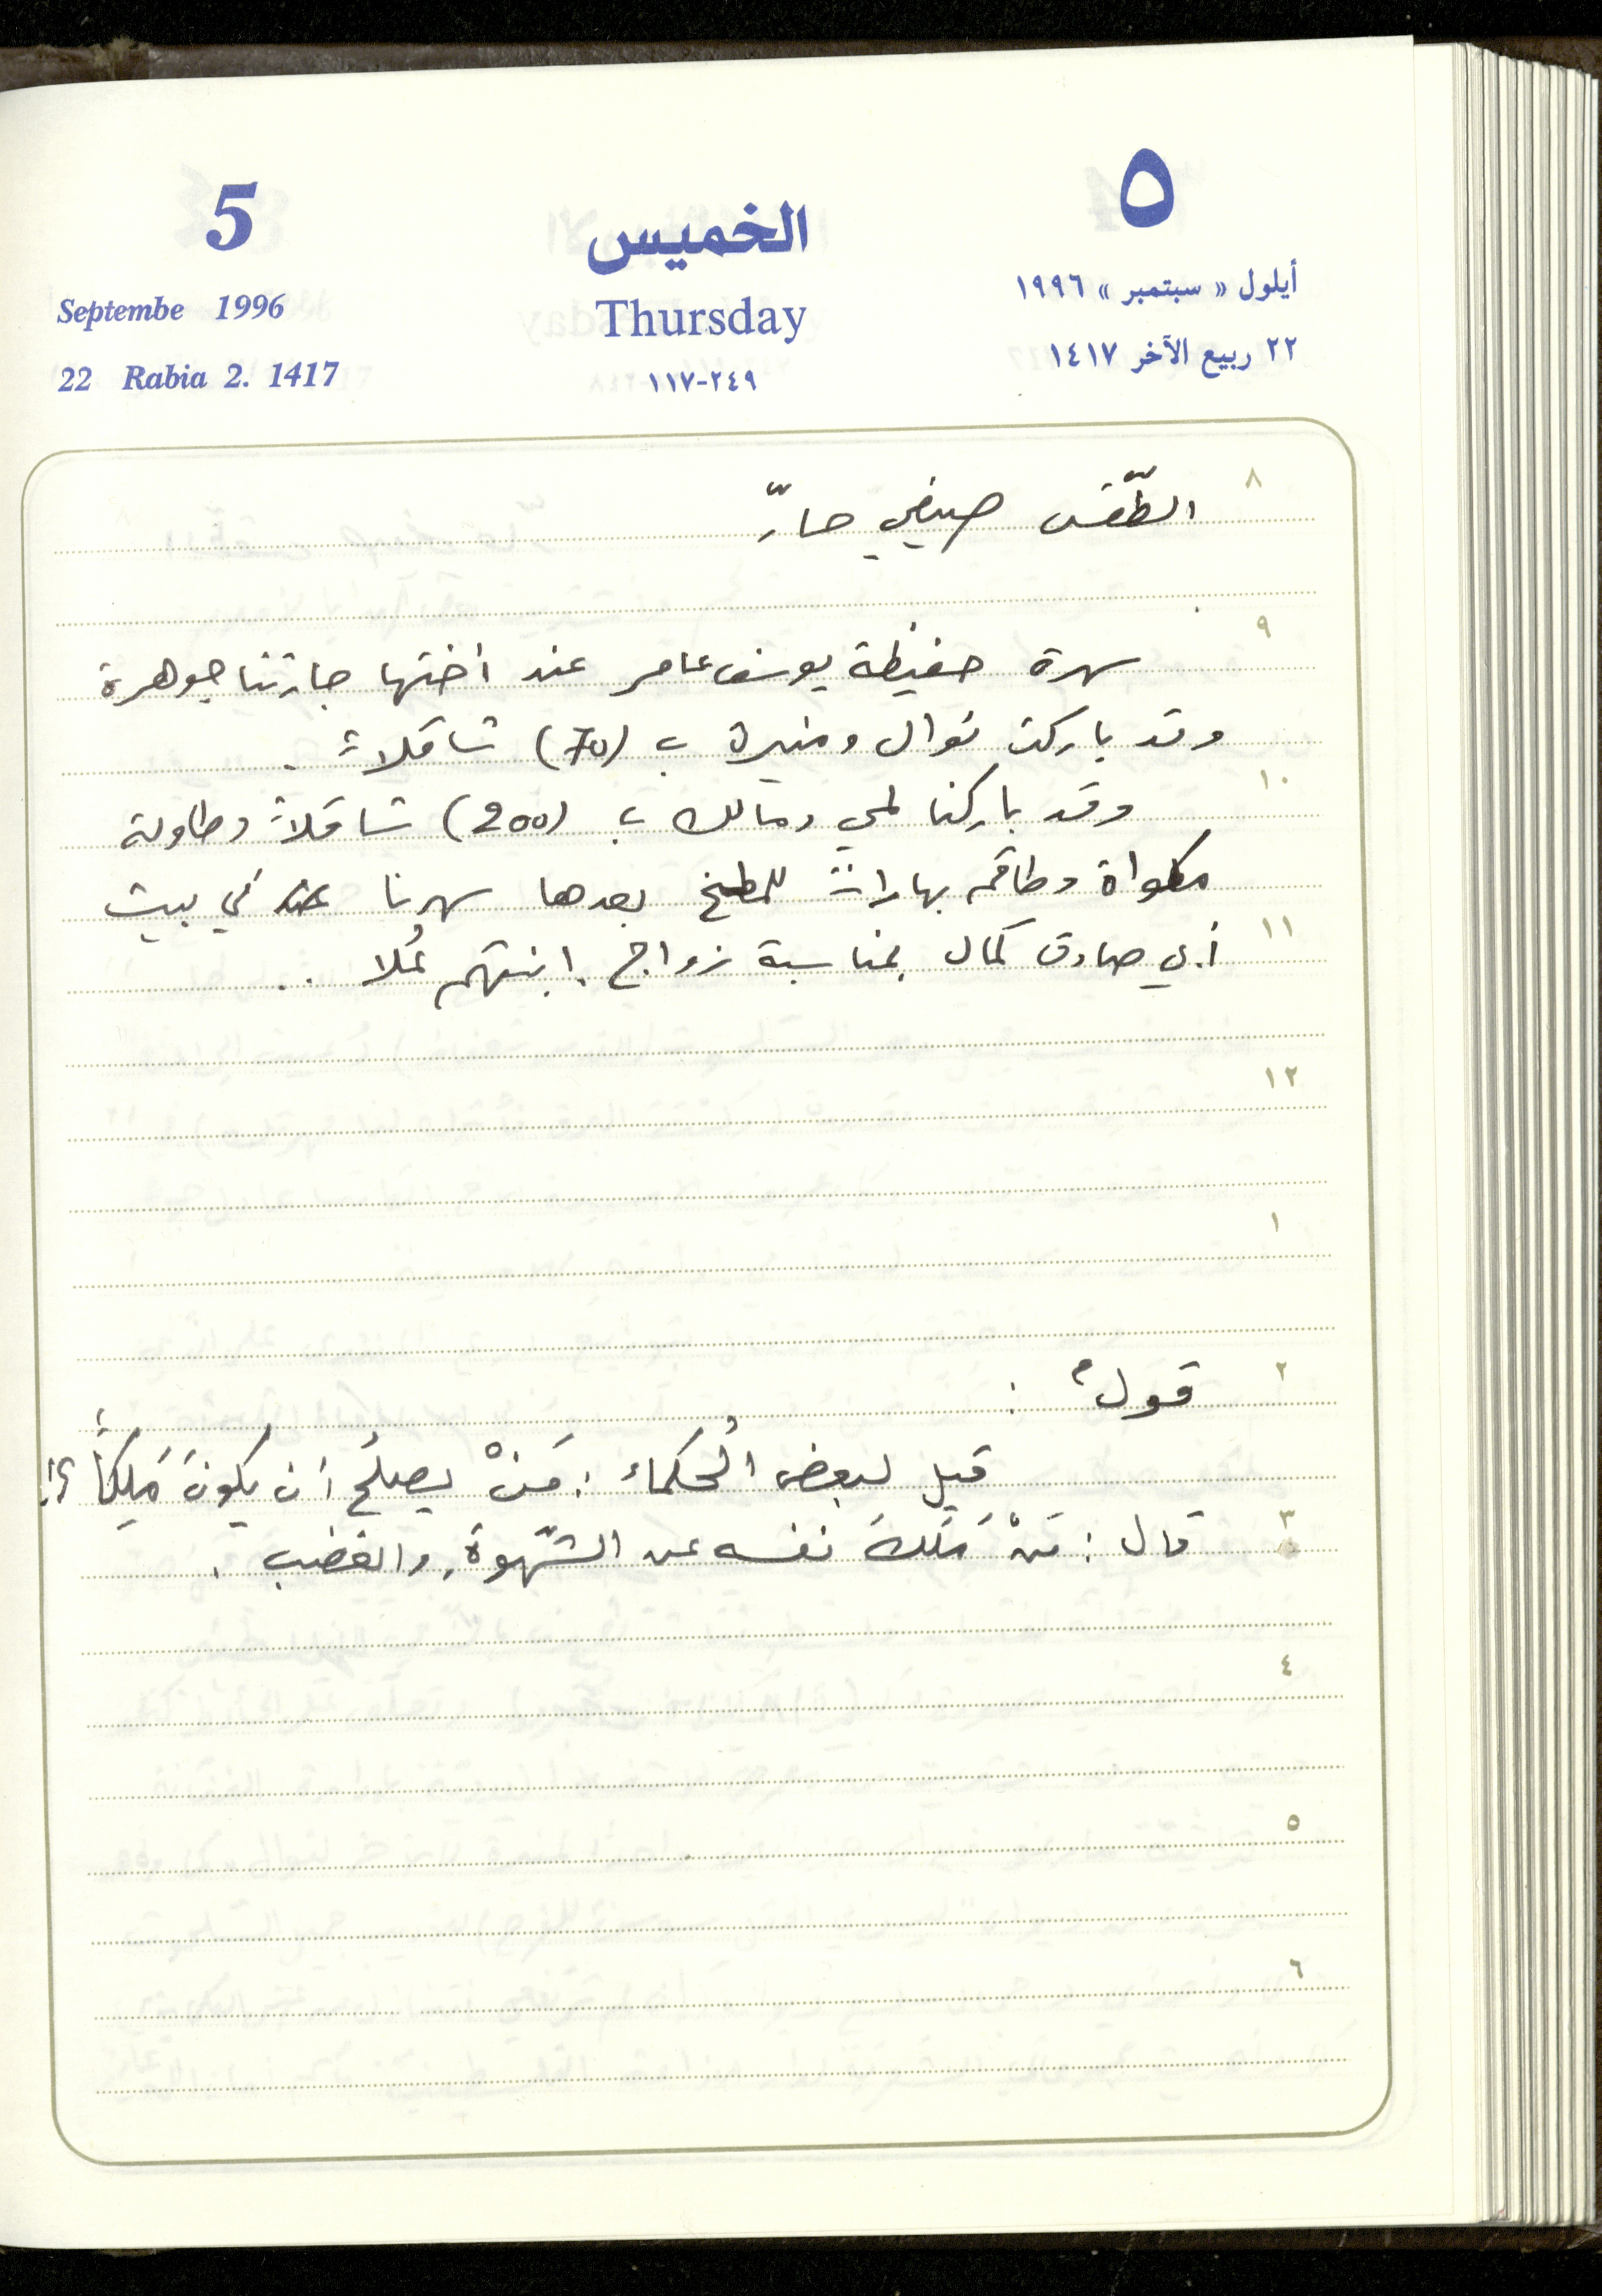 5
الخميس
٥
Septembe 1996
Thursday
أيلول « سبتمبر » ١٩٩٦
22 Rabia 2. 1417
١١٧-٢٤٩
٢٢ ربيع الآخر ١٤١٧
٨
الطّقس صيفي حارّ
٩
سهرة حفيظة يوسف عامر عند اختها جارتنا جوهرة
وقد باركت نوال ومنيرة ب (70) شاقلاً .
١٠
وقد باركنا لمي ومالك ب (200) شاقلاً وطاولة
مكواة وطاقم بهارات للمطبخ بعدها سهرنا في بيت
١١
أبي صادق كمال بمناسبة زواج ابنتهم عُلا ..
١٢
١
٢
قولٌ :
قيل لبعض الُحكماء : مَنْ يصلُح أن يكونَ مَلِكاً ؟!
٣
قال : مَنْ مَلَكَ نفسه عن الشّهوةِ والغضب .
٤
٥
٦